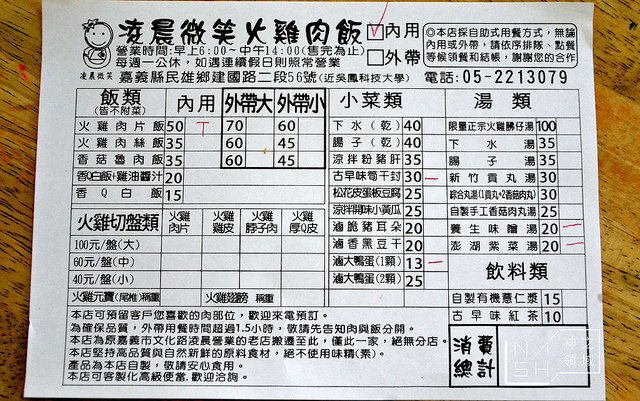 凌晨微笑火雞肉飯
內用
外帶
◎本店採自助式用餐方式，無論
內用或外帶，請依序排隊、點餐
等候領餐和結帳，謝謝您的合作
營業時間:早上6:00~中午14:00(售完為止)
每週一公休，如遇連續假日則照常營業
凌晨微笑
嘉義縣民雄鄉建國路二段56號(近吳鳳科技大學)
電話:05-2213079
飯類 (皆不附菜) 內用 外帶大 外帶小
火雞肉片飯 50 70 60
火雞肉絲飯 35 60 45
香菇魯肉飯 35 60 45
香Q白飯+雞油醬汁 20
香Q白飯 15
火雞切盤類 火雞肉片 火雞雞皮 火雞脖子肉 火雞厚Q皮
100元/盤(大)
60元/盤(中)
40元/盤(小)
火雞元寶(尾椎)稱重 火雞翅膀 稱重
小菜類
下水(乾) 40
腸子(乾) 40
涼拌粉豬肝 35
古早味筍干封 30
松花皮蛋板豆腐 25
涼拌開味小黃瓜 25
滷脆豬耳朵 20
滷香黑豆干 20
滷大鴨蛋(1顆) 13
滷大鴨蛋(2顆) 25
湯類
限量正宗火雞佛仔湯 100
下水湯 35
腸子湯 35
新竹貢丸湯 30
綜合丸湯(1貢丸+2香菇肉丸) 30
自製手工香菇肉丸湯 25
養生味噌湯 20
澎湖紫菜湯 20
飲料類
自製有機薏仁漿 15
古早味紅茶 10
消費總計
本店可預留客戶您喜歡的肉部位，歡迎來電預訂。
為確保品質，外帶用餐時間超過1.5小時，敬請先告知肉與飯分開。
本店為原嘉義市文化路凌晨營業的老店搬遷至此，僅此一家，絕無分店。
本店堅持高品質與自然新鮮的原料食材，絕不使用味精(素)。
產品為本店自製，敬請安心食用。
本店可客製化高級便當，歡迎洽詢。
神之領域